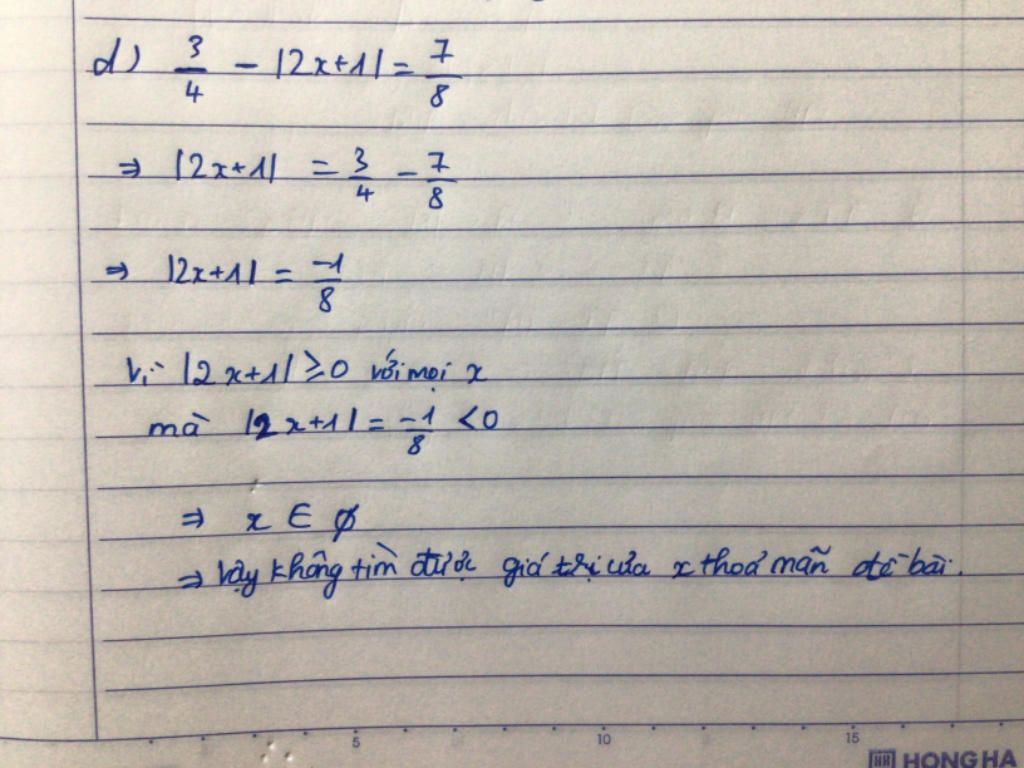 d) 3/4 - |2x+1| = 7/8
⇒ |2x+1| = 3/4 - 7/8
⇒ |2x+1| = -1/8
Vì |2x+1| ≥ 0 với mọi x
mà |2x+1| = -1/8 < 0
⇒ x ∈ ∅
⇒ Vậy không tìm được giá trị của x thoả mãn đề bài.
5 10 15
HONG HA